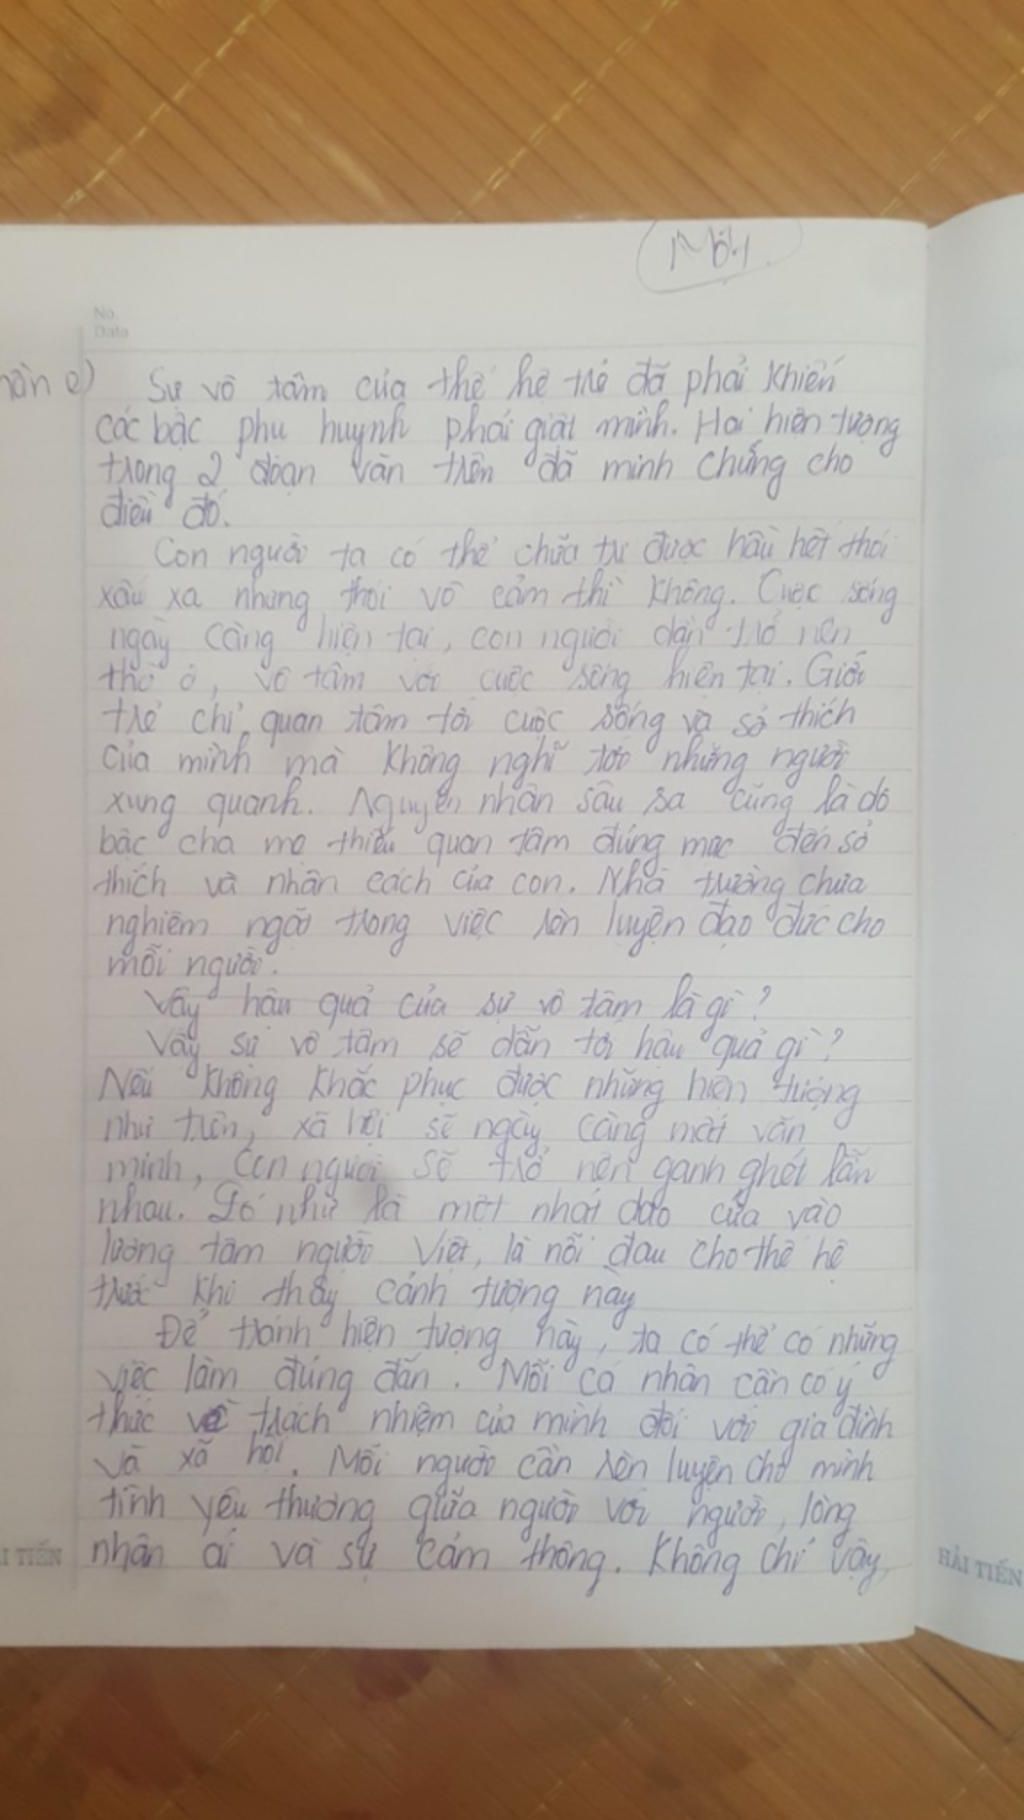 No.
Date
e) Sự vô tâm của thế hệ trẻ đã phải khiến
các bậc phụ huynh phải giật mình. Hai hiện tượng
trong 2 đoạn văn trên đã minh chứng cho
điều đó.
Con người ta có thể chữa trị được hầu hết thói
xấu xa nhưng thói vô cảm thì không. Cuộc sống
ngày càng hiện tại, con người dần trở nên
thờ ơ, vô tâm với cuộc sống hiện tại. Giới
trẻ chỉ quan tâm tới cuộc sống và sở thích
của mình mà không nghĩ tới những người
xung quanh. Nguyên nhân sâu sa cũng là do
bậc cha mẹ thiếu quan tâm đúng mực đến sở
thích và nhân cách của con. Nhà trường chưa
nghiêm ngặt trong việc rèn luyện đạo đức cho
mỗi người.
Vậy hậu quả của sự vô tâm là gì?
Vậy sự vô tâm sẽ dẫn tới hậu quả gì?
Nếu không khắc phục được những hiện tượng
như trên, xã hội sẽ ngày càng mất văn
minh, con người sẽ trở nên ganh ghét lẫn
nhau. Đó như là một nhát dao cứa vào
lương tâm người Việt, là nỗi đau cho thế hệ
trước khi thấy cảnh tượng này
Để tránh hiện tượng này, ta có thể có những
việc làm đúng đắn. Mỗi cá nhân cần có ý
thức về trách nhiệm của mình đối với gia đình
và xã hội. Mỗi người cần rèn luyện cho mình
tình yêu thương giữa người với người, lòng
nhân ái và sự cảm thông. Không chỉ vậy,
HẢI TIẾN